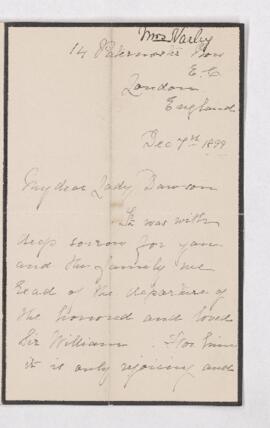 Mrs Varley
14 Paternoster Row
E.C
London
England
Dec 7th 1899
My dear Lady Dawson
It was with
deep sorrow for you
and the family we
read of the departure of
the honored and loved
Sir William. For him
it is only rejoicing and